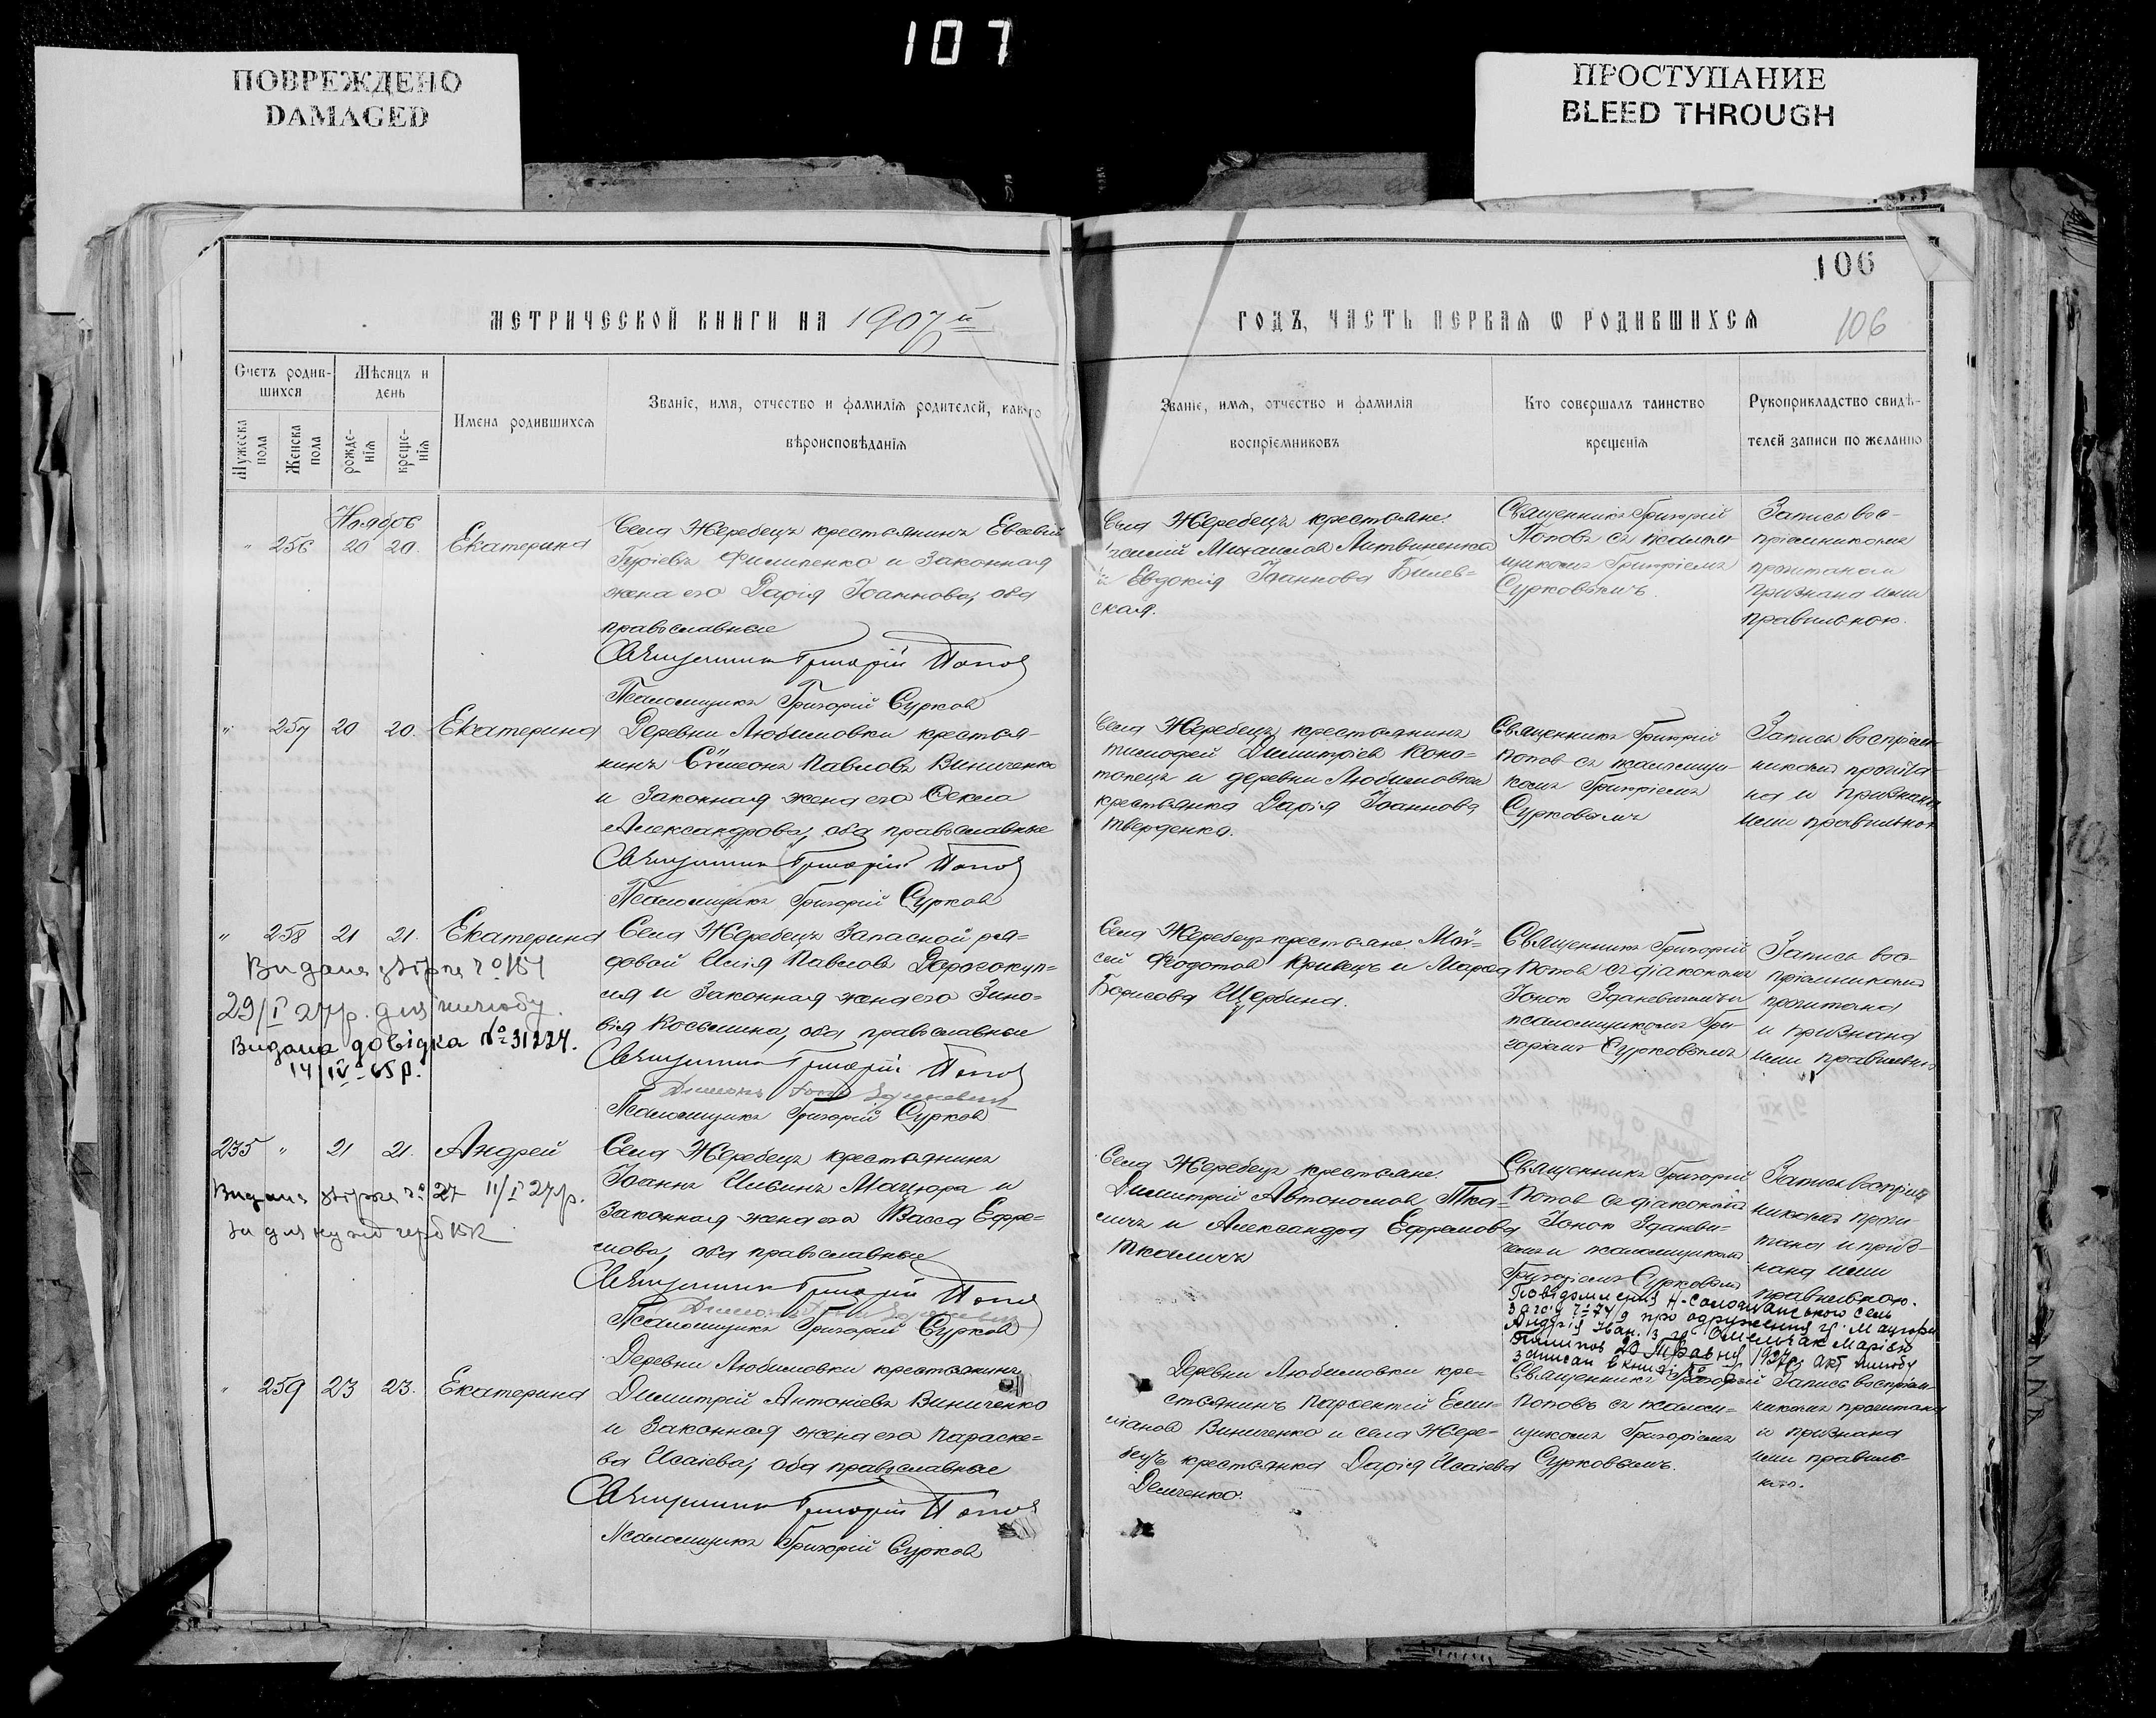 107
ПОВРЕЖДЕНО
DAMAGED
ПРОСТУПАНИЕ
BLEED THROUGH
106
МЕТРИЧЕСКОЙ КНИГИ НА 1907й
ГОДЪ, ЧАСТЬ ПЕРВАЯ Ѡ РОДИВШИХСЯ
106
Счетъ родив-
шихся
Мѣсяцъ и
день
Мужеска
пола
Женска
пола
рожде-
нія
креще-
нія
Имена родившихся
Званіе, имя, отчество и фамилія родителей, какого
вѣроисповѣданія
Званіе, имя, отчество и фамилія
воспріемниковъ
Кто совершалъ таинство
крещенія
Рукоприкладство свидѣ-
телей записи по желанію
Ноябрь
" 256 20 20. Екатерина
Села Жеребецъ крестьянинъ Евсевій
Гуріевъ Филипенко и законная
жена его Дарія Іоаннова, оба
православные
Священникъ Григорій Попов
Псаломщикъ Григорій Сурков
Села Жеребецъ крестьяне
Михаилов Литвиненко
и Евдокія Іоаннова Билев-
ская.
Священникъ Григорій
Поповъ съ псалом-
щикомъ Григоріемъ
Сурковымъ.
Запись вос-
пріемникомъ
прочитана
признана ими
правильною.
" 257 20 20. Екатерина
Деревни Любимовки крестья-
нинъ Сѵмеонъ Павловъ Виниченко
и законная жена его Ѳекла
Александрова, оба православные
Священникъ Григорій Попов
Псаломщикъ Григорій Сурков
Села Жеребецъ крестьянинъ
Тимофей Димитріев Коно-
топецъ и деревни Любимовки
крестьянка Дарія Іоаннова
Тверденко.
Священникъ Григорій
Попов съ псаломщи-
комъ Григоріемъ
Сурковымъ
Запись воспріем-
никомъ прочита-
на и признана
ими правильною
" 258 21 21. Екатерина
Видана № 154
29/I 27р. для шлюбу.
Видана довідка № 31274.
14/IV-65р.
Села Жеребецъ запасной ря-
довой Илія Павлов Дорогокуп-
ля и законная жена его Зино-
вія Косьмина, оба православные
Священникъ Григорій Попов
Псаломщикъ Григорій Сурков
Села Жеребецъ крестьяне Мои-
сей Федотов Кривець и Марфа
Борисова Щербина.
Священникъ Григорій
Попов съ діакономъ
Іоною Зданевичемъ и
псаломщикомъ Гри-
горіемъ Сурковымъ
Запись вос-
пріемникомъ
прочитана
и признана
ими правильною
235 " 21 21. Андрей
Видана № 27 11/I 27р.
Села Жеребецъ крестьянинъ
Іоаннъ Ильинъ Мацюра и
законная жена его Васса Ефре-
мова, оба православные
Священникъ Григорій Попов
Псаломщикъ Григорій Сурков
Села Жеребецъ крестьяне
Димитрій Автономов Тка-
личъ и Александра Ефремова
Ткаличъ
Священникъ Григорій
Попов съ діакономъ
Іоною Зданеви-
чемъ и псаломщикомъ
Григоріемъ Сурковымъ
Запись воспріем-
никомъ прочи-
тана и приз-
нана ими
правильною.
про одруження гр. Мацюри
Андрія Іван. з гр. Омельчак Марією
20 Травня 1927р. акт шлюбу
записан в книзі №
" 259 23 23. Екатерина
Деревни Любимовки крестьянинъ
Димитрій Антоніевъ Виниченко
и законная жена его Параске-
ва Исаіева, оба православные
Священникъ Григорій Попов
Псаломщикъ Григорій Сурков
Деревни Любимовки кре-
стьянинъ Парѳентій Еми-
ліанов Виниченко и села Жере-
бецъ крестьянка Дарія Исаіева
Демченко.
Священникъ Григорій
Поповъ съ псалом-
щикомъ Григоріемъ
Сурковымъ.
Запись воспріем-
никомъ прочитана
и признана
ими правиль-
ною.